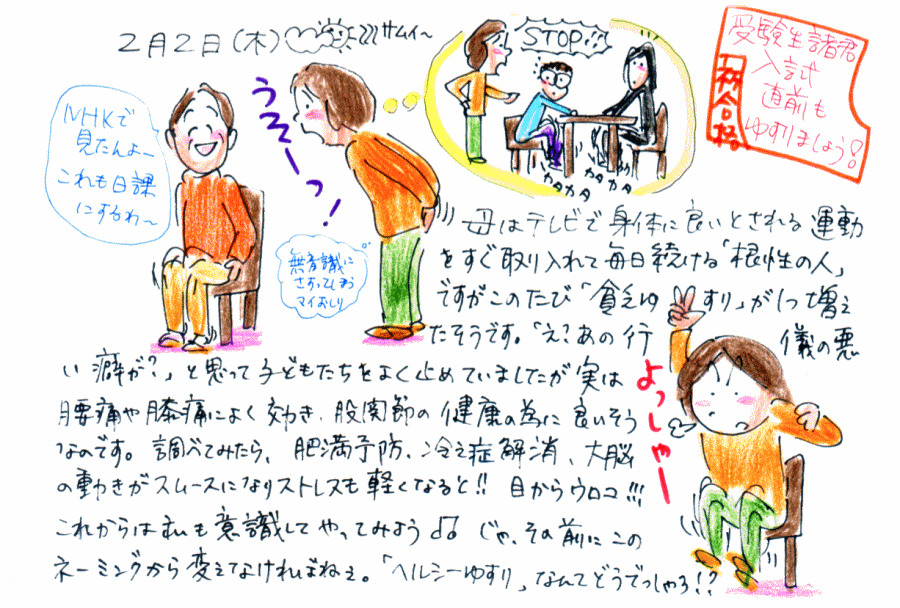 2月2日(木)
サムイ～
STOP!!
カタカタ
カタカタ
受験生諸君
入試
直前も
ゆすりましょう!
祈合格
NHKで
見たんよ～
これも日課
にするわ～
うそーっ!
無意識に
さすってしまう
マイおしり
母はテレビで身体に良いとされる運動
をすぐ取り入れて毎日続ける「根性の人」
ですがこのたび「貧乏ゆすり」が1つ増え
たそうです。「え?あの行儀の悪
い癖が?」と思って子どもたちをよく止めていましたが実は
腰痛や膝痛によく効き、股関節の健康の為に良いそう
なのです。調べてみたら、肥満予防、冷え症解消、大脳
の動きがスムースになりストレスも軽くなると!! 目からウロコ!!!
これからは私も意識してやってみよう♪♫ じゃ、その前にこの
ネーミングから変えてなければねぇ。「ヘルシーゆすり」なんてどうでっしゃろ!?
よっしゃー